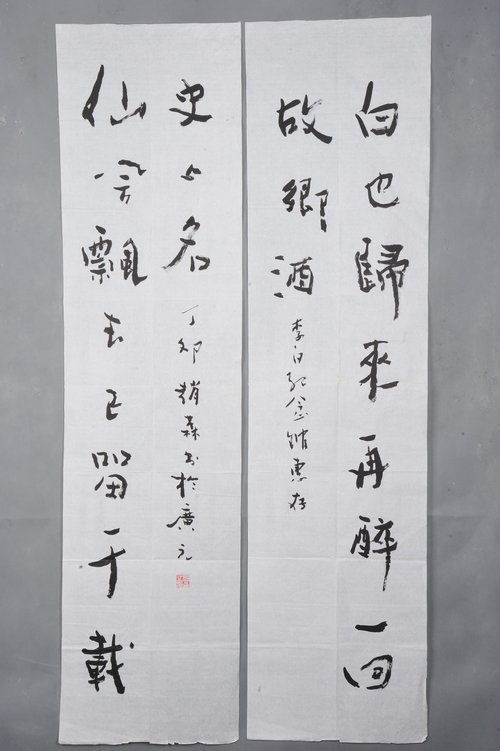 白也歸來再醉一回
故鄉酒
李白紀念館惠存
仙兮飄去已留千載
史上名
丁卯趙森书於廣元